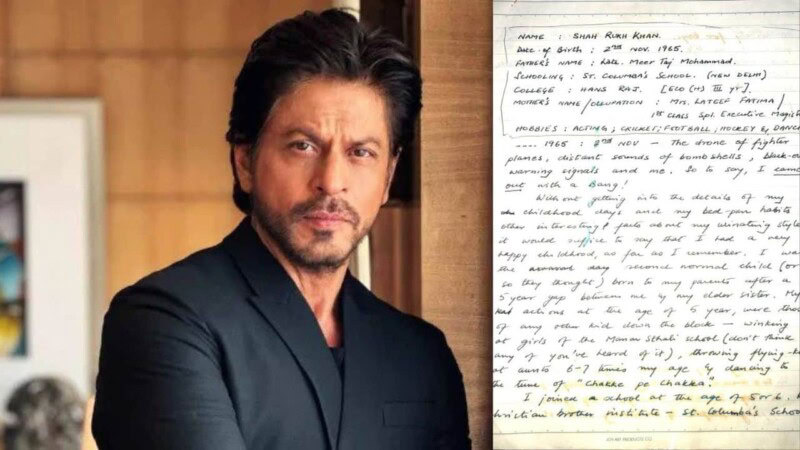 NAME : SHAH RUKH KHAN.
Date of Birth : 2ND NOV. 1965.
FATHER'S NAME : Late. Meer Taj Mohammad.
SCHOOLING : ST. COLUMBA'S SCHOOL. (NEW DELHI)
COLLEGE : HANS RAJ. [ECO (H) III yr].
MOTHER'S NAME/OCCUPATION : Mrs. LATEEF FATIMA/
1ST CLASS Spl. Executive Magist
HOBBIES: ACTING; CRICKET; FOOTBALL; HOCKEY & DANC
.... 1965 : 2ND NOV — The drone of fighter
planes, distant sounds of bombshells, black-o
warning signals and me. So to say, I came
out with a Bang!
Without getting into the details of my
childhood days and my bed-pan habits
other interesting facts about my urinating style
it would suffice to say that I had a very
happy childhood, as far as I remember. I wa
the day second normal child (or
so they thought) born to my parents after a
5 year gap between me & my elder sister. My
actions at the age of 5 year, were thos
of any other kid down the block — winking
at girls of the Manav Sthali school (don't think
any of you've heard of it), throwing flying-k
at aunts 6-7 times my age & dancing to
the tune of "Chakke pe Chakka".
I joined a school at the age of 5 or 6.
hristian brother institute — St. Columba's Schoo